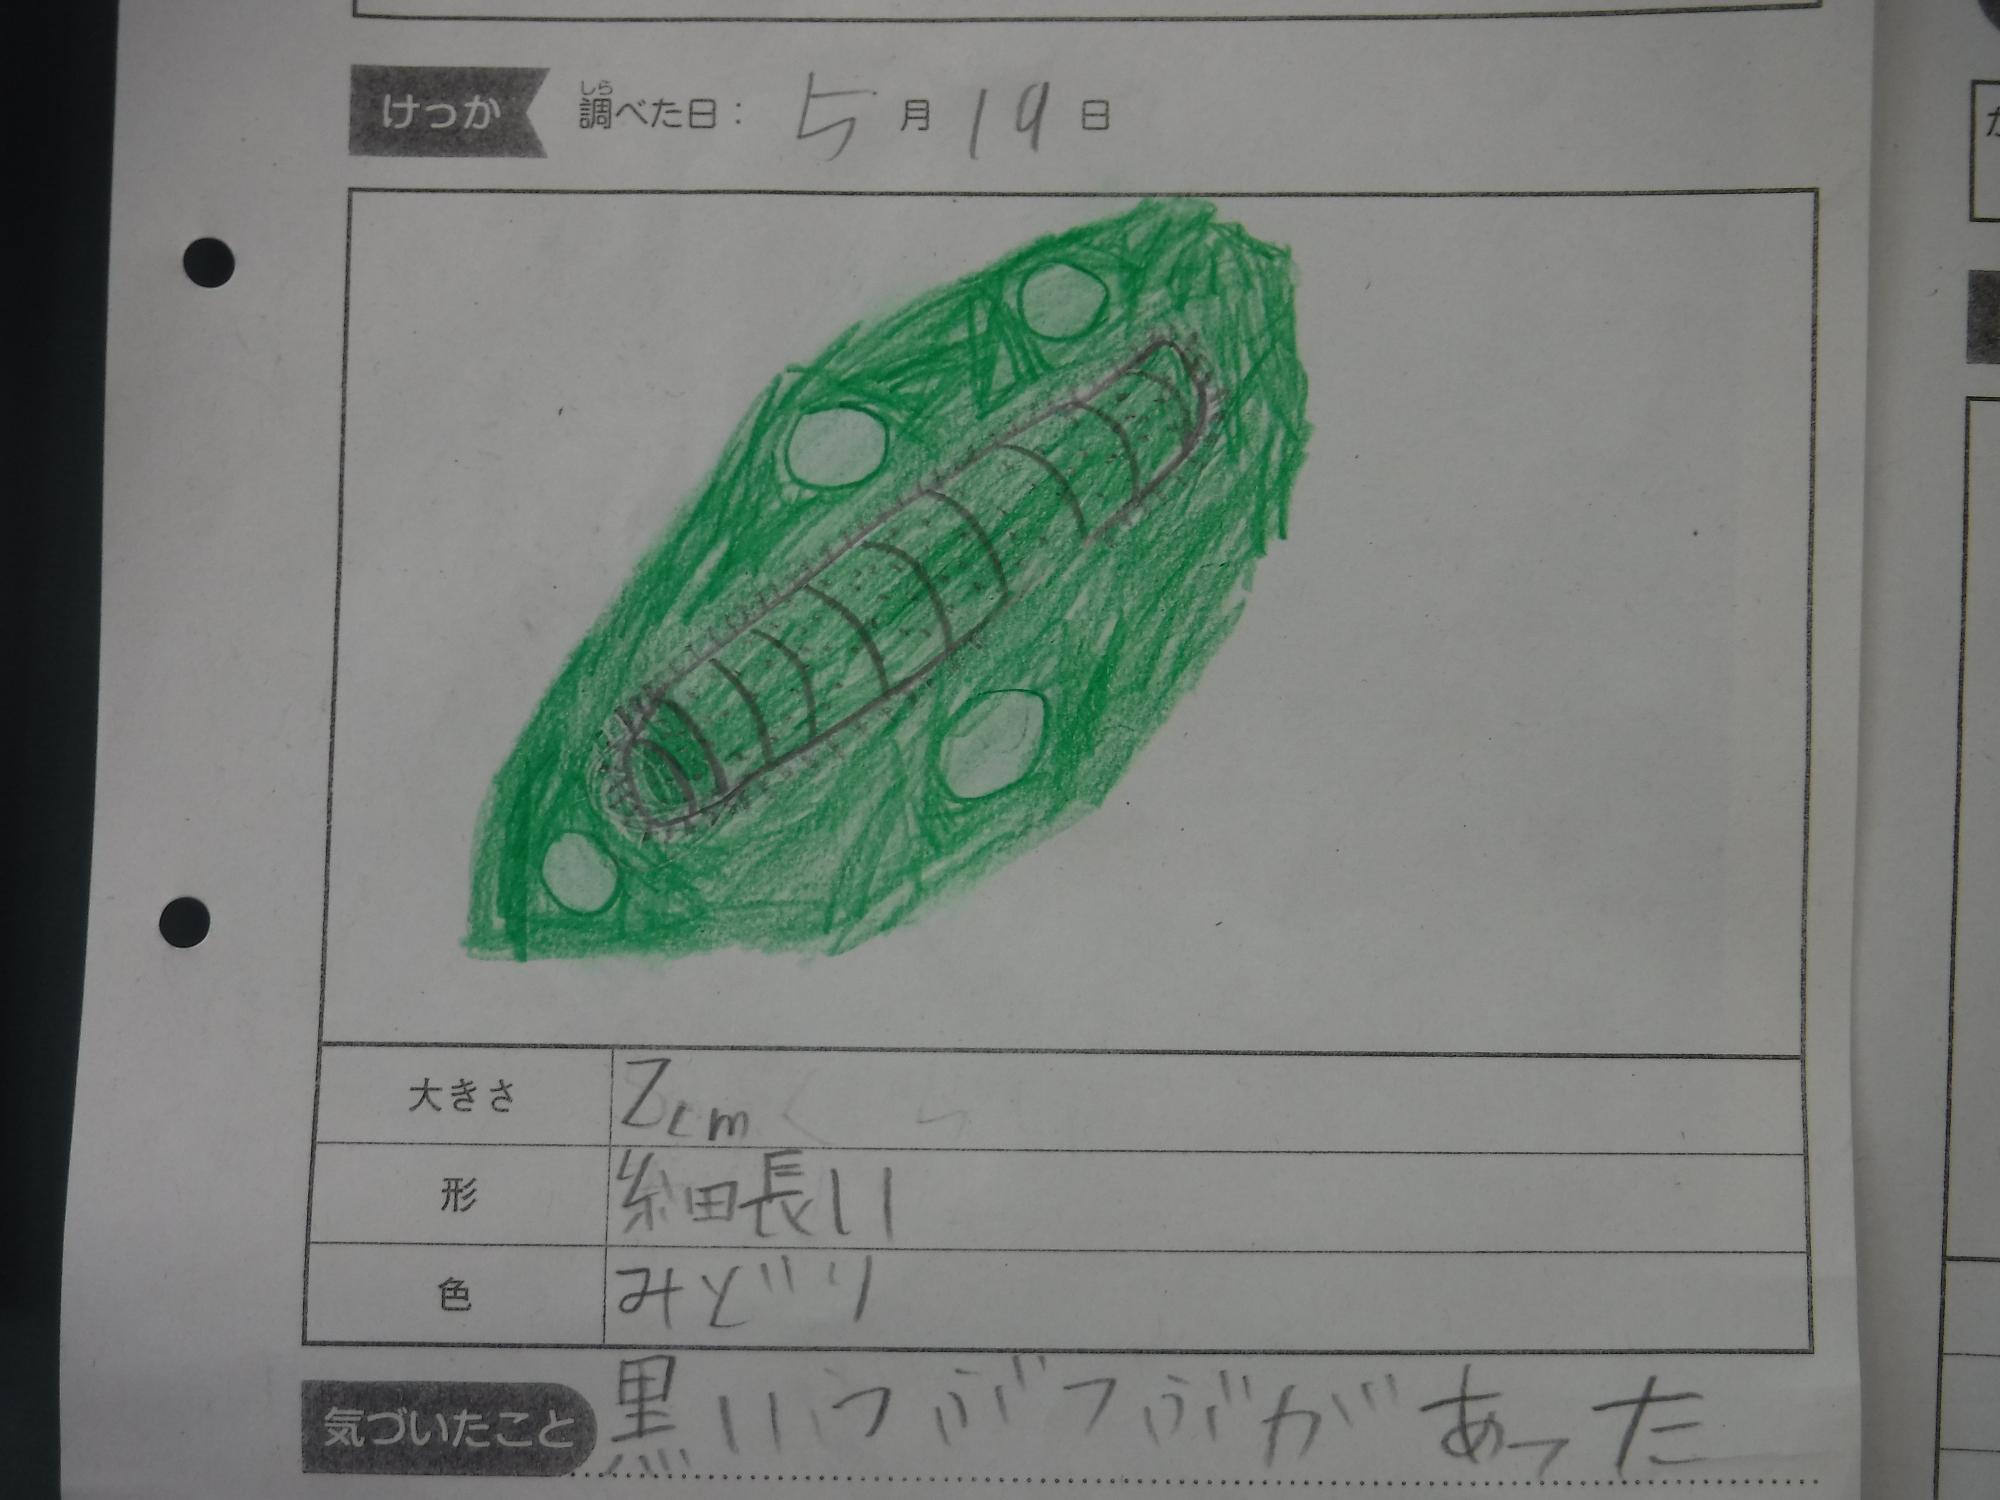 けっか 調べた日： 5月19日
しら
大きさ 2cm
形 細長い
色 みどり
気づいたこと 黒いつぶつぶがあった